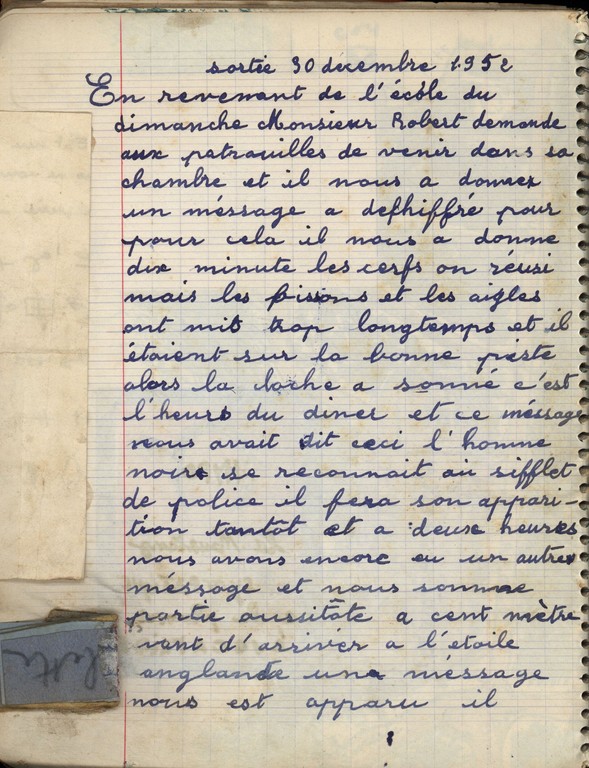 sortie 30 décembre 1952
En revenant de l'école du
dimanche Monsieur Robert demande
aux patrouilles de venir dans sa
chambre et il nous a donner
un méssage a defhiffré pour
pour cela il nous a donne
dix minute les cerfs on réusi
mais les bisons et les aigles
ont mit trop longtemps et il
étaient sur la bonne pieste
alors la loche a sonné c'est
l'heure du diner et ce méssage
nous avait dit ceci l'homme
noire se reconnait au sifflet
de police il fera son appari-
tion tantôt et a deux heures
nous avons encore eu un autre
méssage et nous somme
partie aussitôte a cent mètre
vant d'arrivér a l'etoile
anglande une méssage
nous est apparu il